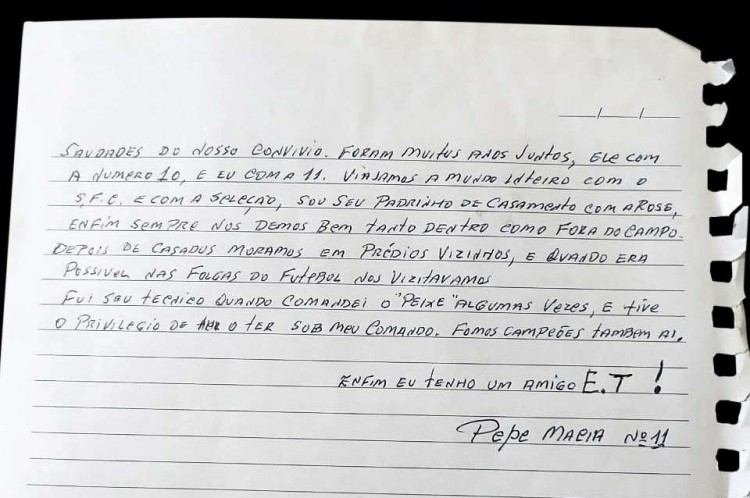 SAUDADES DO NOSSO CONVIVIO. FORAM MUITOS ANOS JUNTOS, ELE COM
A NUMERO 10, E EU COM A 11. VIAJAMOS A MUNDO INTEIRO COM O
S.F.C. E COM A SELEÇÃO, SOU SEU PADRINHO DE CASAMENTO COM A ROSE,
ENFIM SEMPRE NOS DEMOS BEM TANTO DENTRO COMO FORA DO CAMPO.
DEPOIS DE CASADOS MORAMOS EM PRÉDIOS VIZINHOS, E QUANDO ERA
POSSIVEL NAS FOLGAS DO FUTEBOL NOS VIZITAVAMOS
FUI SEU TECNICO QUANDO COMANDEI O "PEIXE" ALGUMAS VEZES, E TIVE
O PRIVILEGIO DE O TER SOB MEU COMANDO. FOMOS CAMPEÕES TAMBEM AI.
ENFIM EU TENHO UM AMIGO E.T !
Pepe MACIA Nº 11